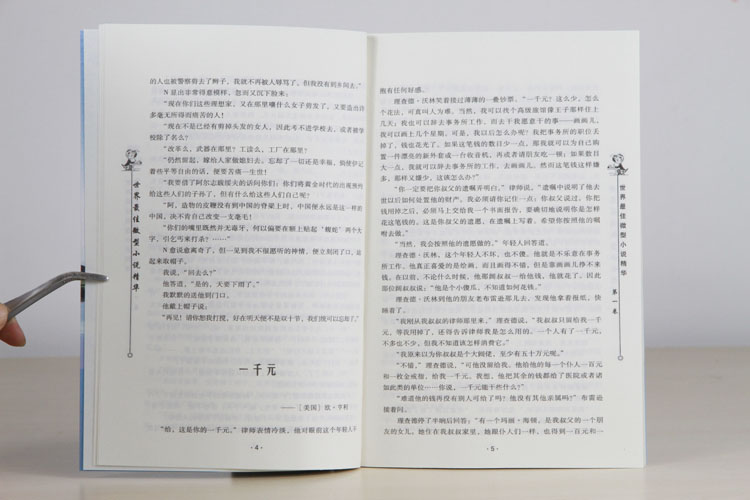 的人也被警察剪去了辫子，我就不再被人辱骂了，但我没有到乡间去。”
N显出非常得意模样，忽而又沉下脸来：
“现在你们这些理想家，又在那里嚷什么女子剪发了，又要造出许
多毫无所得而痛苦的人！
“现在不是已经有剪掉头发的女人，因此考不进学校去，或者被学
校除了名么？
“改革么，武器在那里？工读么，工厂在那里？
“仍然留起，嫁给人家做媳妇去：忘却了一切还是幸福，倘使伊记
着些平等自由的话，便要苦痛一生世！
“我要借了阿尔志跋绥夫的话问你们：你们将黄金时代的出现预约
给这些人们的子孙了，但有什么给这些人们自己呢？
“阿，造物的皮鞭没有到中国的脊梁上时，中国便永远是这一样的
中国，决不肯自己改变一支毫毛！
“你们的嘴里既然并无毒牙，何以偏要在额上帖起‘蝮蛇’两个大
字，引乞丐来打杀？……”
N愈说愈离奇了，但一见到我不很愿听的神情，便立刻闭了口，站
起来取帽子。
我说，“回去么？”
他答道，“是的，天要下雨了。”
我默默的送他到门口。
他戴上帽子说：
“再见！请你恕我打搅，好在明天便不是双十节，我们统可以忘却了。”
一千元
——［美国］欧·亨利
“给，这是你的一千元。”律师表情冷淡，他对眼前这个年轻人不
·4·
世界最佳微型小说精华
抱有任何好感。
理查德·沃林笑着接过薄薄的一叠钞票。“一千元？这么少，怎么
个花法，可真叫人为难。当然，我可以找个高级旅馆像王子那样住上
几天；我也可以辞去事务所工作，而去干我愿意干的事——画画儿，
我可以画上几个星期。可是，我以后怎么办呢？我把事务所的职位丢
掉了，钱也花光了。如果这笔钱的数目少一点，那我就可以为自己购
置一件漂亮的新外套或一台收音机，再或者请朋友吃一顿；如果数目
大一点，我就可以辞去事务所的工作，去画画儿，然而这笔钱这样嫌
多，那样又嫌少，这该怎么办？”
“你一定要把你叔父的遗嘱弄明白。”律师说，“遗嘱中说明了他去
世以后如何处置他的财产。我必须请你记住一点：你叔父说过，你把
钱用掉之后，必须马上交给我一个书面报告，要确切地说明你是怎样
花这笔钱的。你叔父的遗愿，在遗嘱上写着，希望你按照他的嘱
咐去做。”
“当然，我会按照他的遗愿做的。”年轻人回答道。
理查德·沃林，这个年轻人不坏，也不傻，他就是不乐意在事务
所工作，他真正喜爱的是绘画，而且画得不错，但是靠画画儿挣不来
钱。在以前，不论什么时候，他那阔叔叔一给他钱，他就花了。因此
那位阔叔叔说：“他是个小傻瓜，不知道如何花钱。”
理查德·沃林到他的朋友老布雷逊那儿去，发现他拿着报纸，快
睡着了。
“我刚从我叔叔的律师那里来，”理查德说，“我叔叔只留给我一千
元，等我用掉了，还得告诉律师我是怎么用的。一个人有了一千元，
不多也不少，但我不知道该怎样消费它。”
“我原来以为你叔叔是个大阔佬，至少有五十万元呢。”
“不错，”理查德说，“可他没留给我。他给他的每一个仆人一百元
和一枚金戒指，给我一千元。我想，他把其余的钱都给了医院或者诸
如此类的单位……你说，一千元能干些什么？”
“难道他的钱再没有别人可给了吗？他没有其他亲属吗？”布雷逊
接着问。
理查德停了半晌后回答：“有一个玛丽·海顿，是我叔父的一个朋
友的女儿，她住在我叔叔家里，她跟仆人们一样，也得到一百元和一
·5·
世界最佳微型小说精华
第一卷